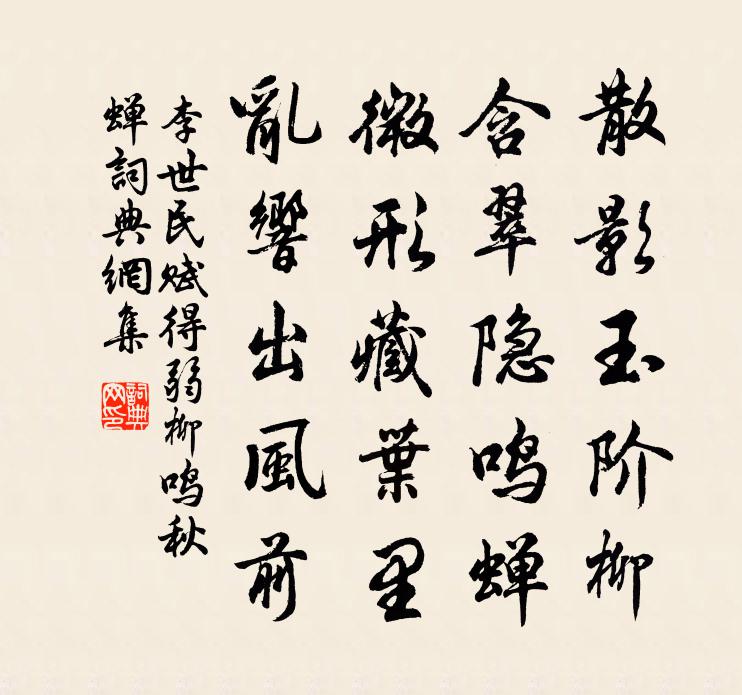 散影玉阶柳
含翠隐鸣蝉
微形藏葉里
亂響出風前
李世民赋得弱柳鸣秋
蝉詞典網集
詞典网印